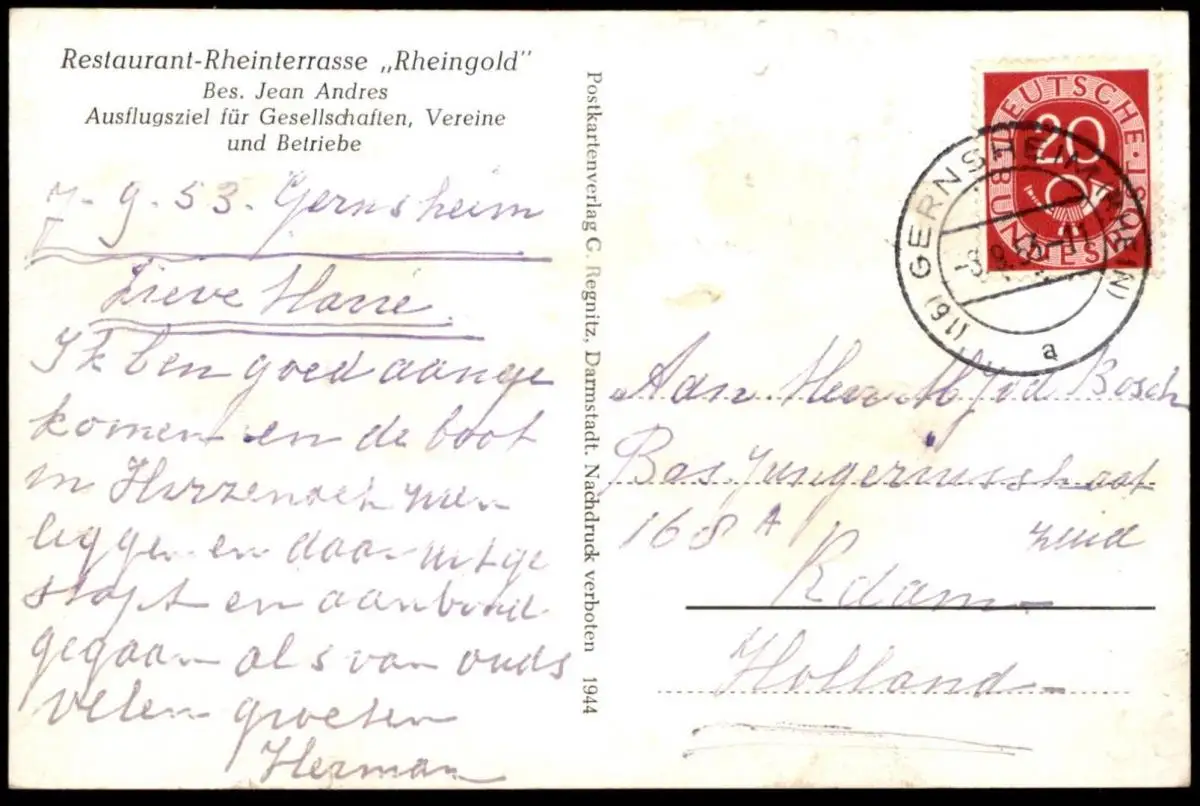 Restaurant-Rheinterrasse „Rheingold"
Bes. Jean Andres
Ausflugsziel für Gesellschaften, Vereine
und Betriebe
7-9.53. Gernsheim
Lieve Harrie.
Ik ben goed aange
komen en de boot
in
liggen en daar uitge
stapt en aanboord
gegaan als van ouds
velen groeten
Herman
Postkartenverlag C. Regnitz, Darmstadt. Nachdruck verboten 1944
DEUTSCHE BUNDESPOST
20
(16) GERNSHEIM (RHEIN)
a
Adn Heer Bosch
Bas Jungeriusstraat
168 A zuid
Rdam
Holland